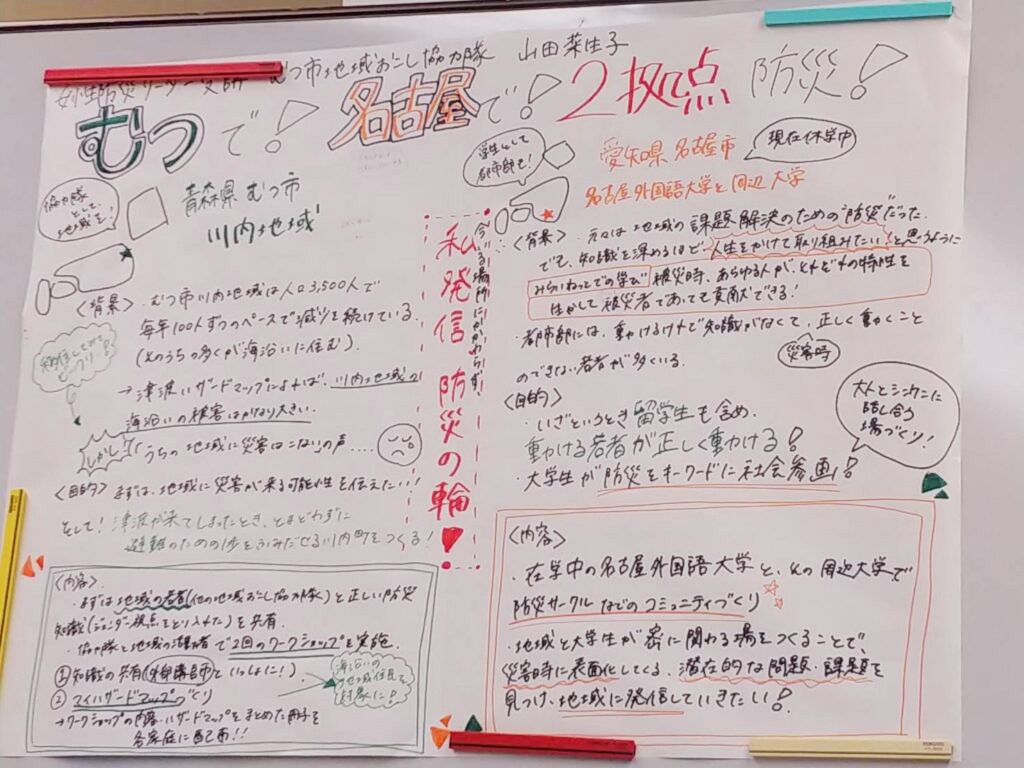 むつ市地域おこし協力隊 山田菜生子
むつで! 名古屋で! 2拠点防災!
協力隊
として
地域を!
青森県 むつ市
川内地域
<背景>
・むつ市川内地域は人口3,500人で
毎年100人ずつのペースで減少を続けている。
(そのうちの多くが海沿いに住む)。
→津波ハザードマップによれば、川内地域の
海沿いの被害はかなり大きい。
しかし
「うちの地域に災害はこない」の声....
<目的> まずは、地域に災害が来る可能性を伝えたい!
そして! 津波が来てしまったとき、とまどわずに
避難のための1歩をふみだせる川内町をつくる!
<内容>
・まずは地域の若者(他の地域おこし協力隊)と正しい防災
知識(ジェンダー視点をとり入れた)を共有.
・協力隊と地域の若者で2回のワークショップを実施.
①知識の共有(外部講師といっしょに!)
②マイハザードマップづくり
→ワークショップの内容・ハザードマップをまとめた冊子を
各家庭に配布!!
海沿いの
地域住民を
対象に!
今いる場所にかかわらず
私発信 防災の輪!
学生として
都市部を!
愛知県 名古屋市
名古屋外国語大学と周辺大学
現在休学中
<背景>・元々は地域の課題解決のための"防災"だった.
でも、知識を深めるほど、人生をかけて取り組みたい!と思うように
みらいねっとでの学び 被災時、あらゆる人が、それぞれの特性を
生かして被災者であっても貢献できる!
・都市部には、動けるけれど知識がなくて、正しく動くこと
のできない若者が多くいる.
災害時
<目的>
・いざというとき留学生も含め.
動ける若者が正しく動ける!
・大学生が防災をキーワードに社会参画!
大人とシンケンに
話し合う
場づくり!
<内容>
・在学中の名古屋外国語大学と、その周辺大学で
防災サークルなどのコミュニティづくり
・地域と大学生が密に関わる場をつくることで、
災害時に表面化してくる、潜在的な問題・課題を
見つけ、地域に発信していきたい!